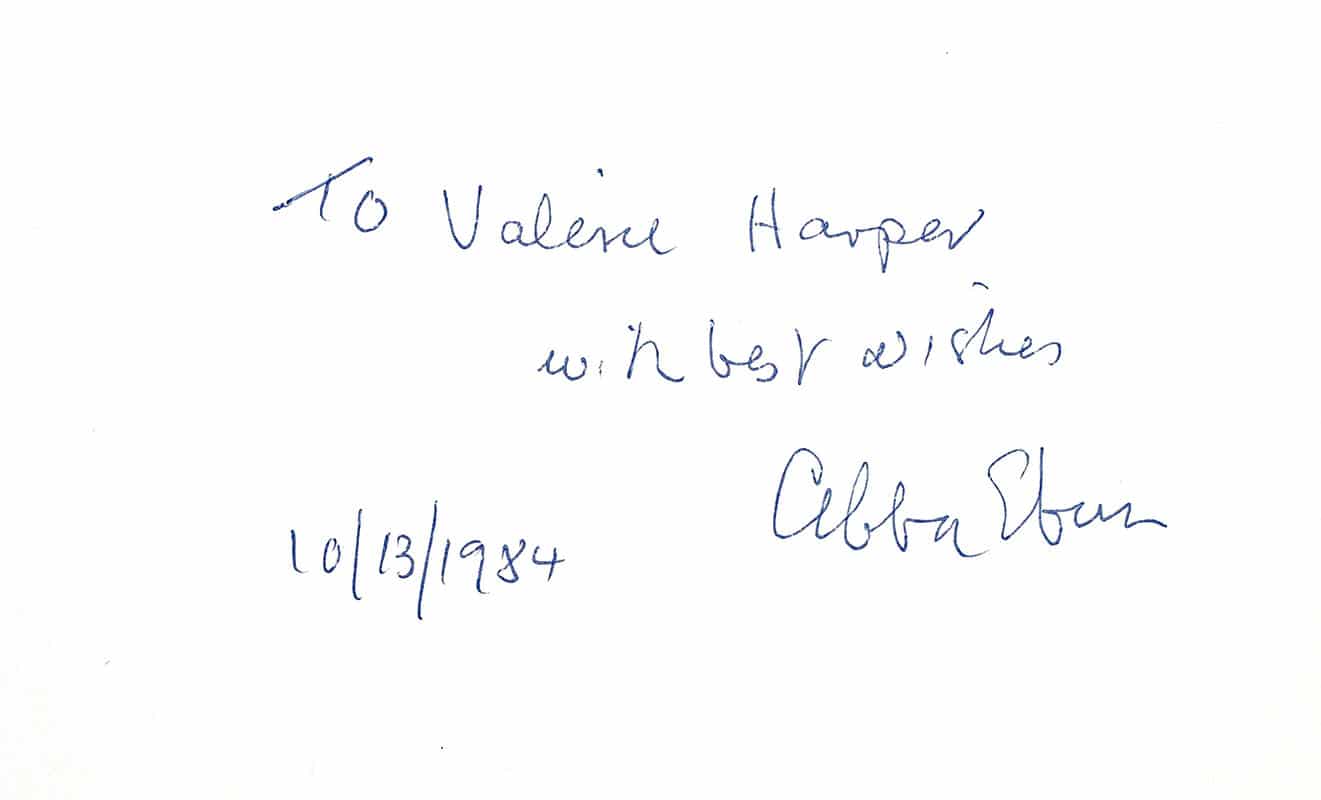 To Valerie Harper
with best wishes
Abba Eban
10/13/1984